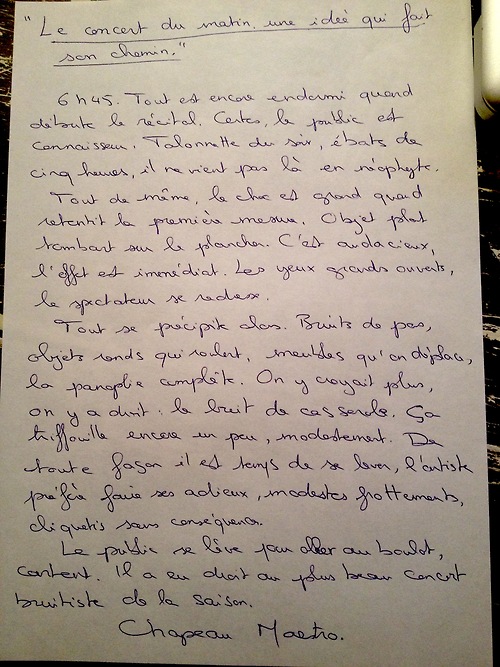 "Le concert du matin. une idée qui fait
son chemin."
6h45. Tout est encore endormi quand
débute le récital. Certes, le public est
connaisseur. Talonnette du soir, ébats de
cinq heures, il ne vient pas là en néophyte.
Tout de même, le choc est grand quand
retentit la première mesure. Objet plat
tombant sur le plancher. C'est audacieux,
l'effet est immédiat. Les yeux grands ouverts,
le spectateur se redresse.
Tout se précipite alors. Bruits de pas,
objets ronds qui roulent, meubles qu'on déplace,
la panoplie complète. On y croyait plus,
on y a droit : le bruit de casserole. Ça
triffouille encore un peu, modestement. De
toute façon il est temps de se lever, l'artiste
préfère faire ses adieux, modestes frottements,
cliquetis sans conséquence.
Le public se lève pour aller au boulot,
content. Il a eu droit au plus beau concert
bruitiste de la saison.
Chapeau Maestro.